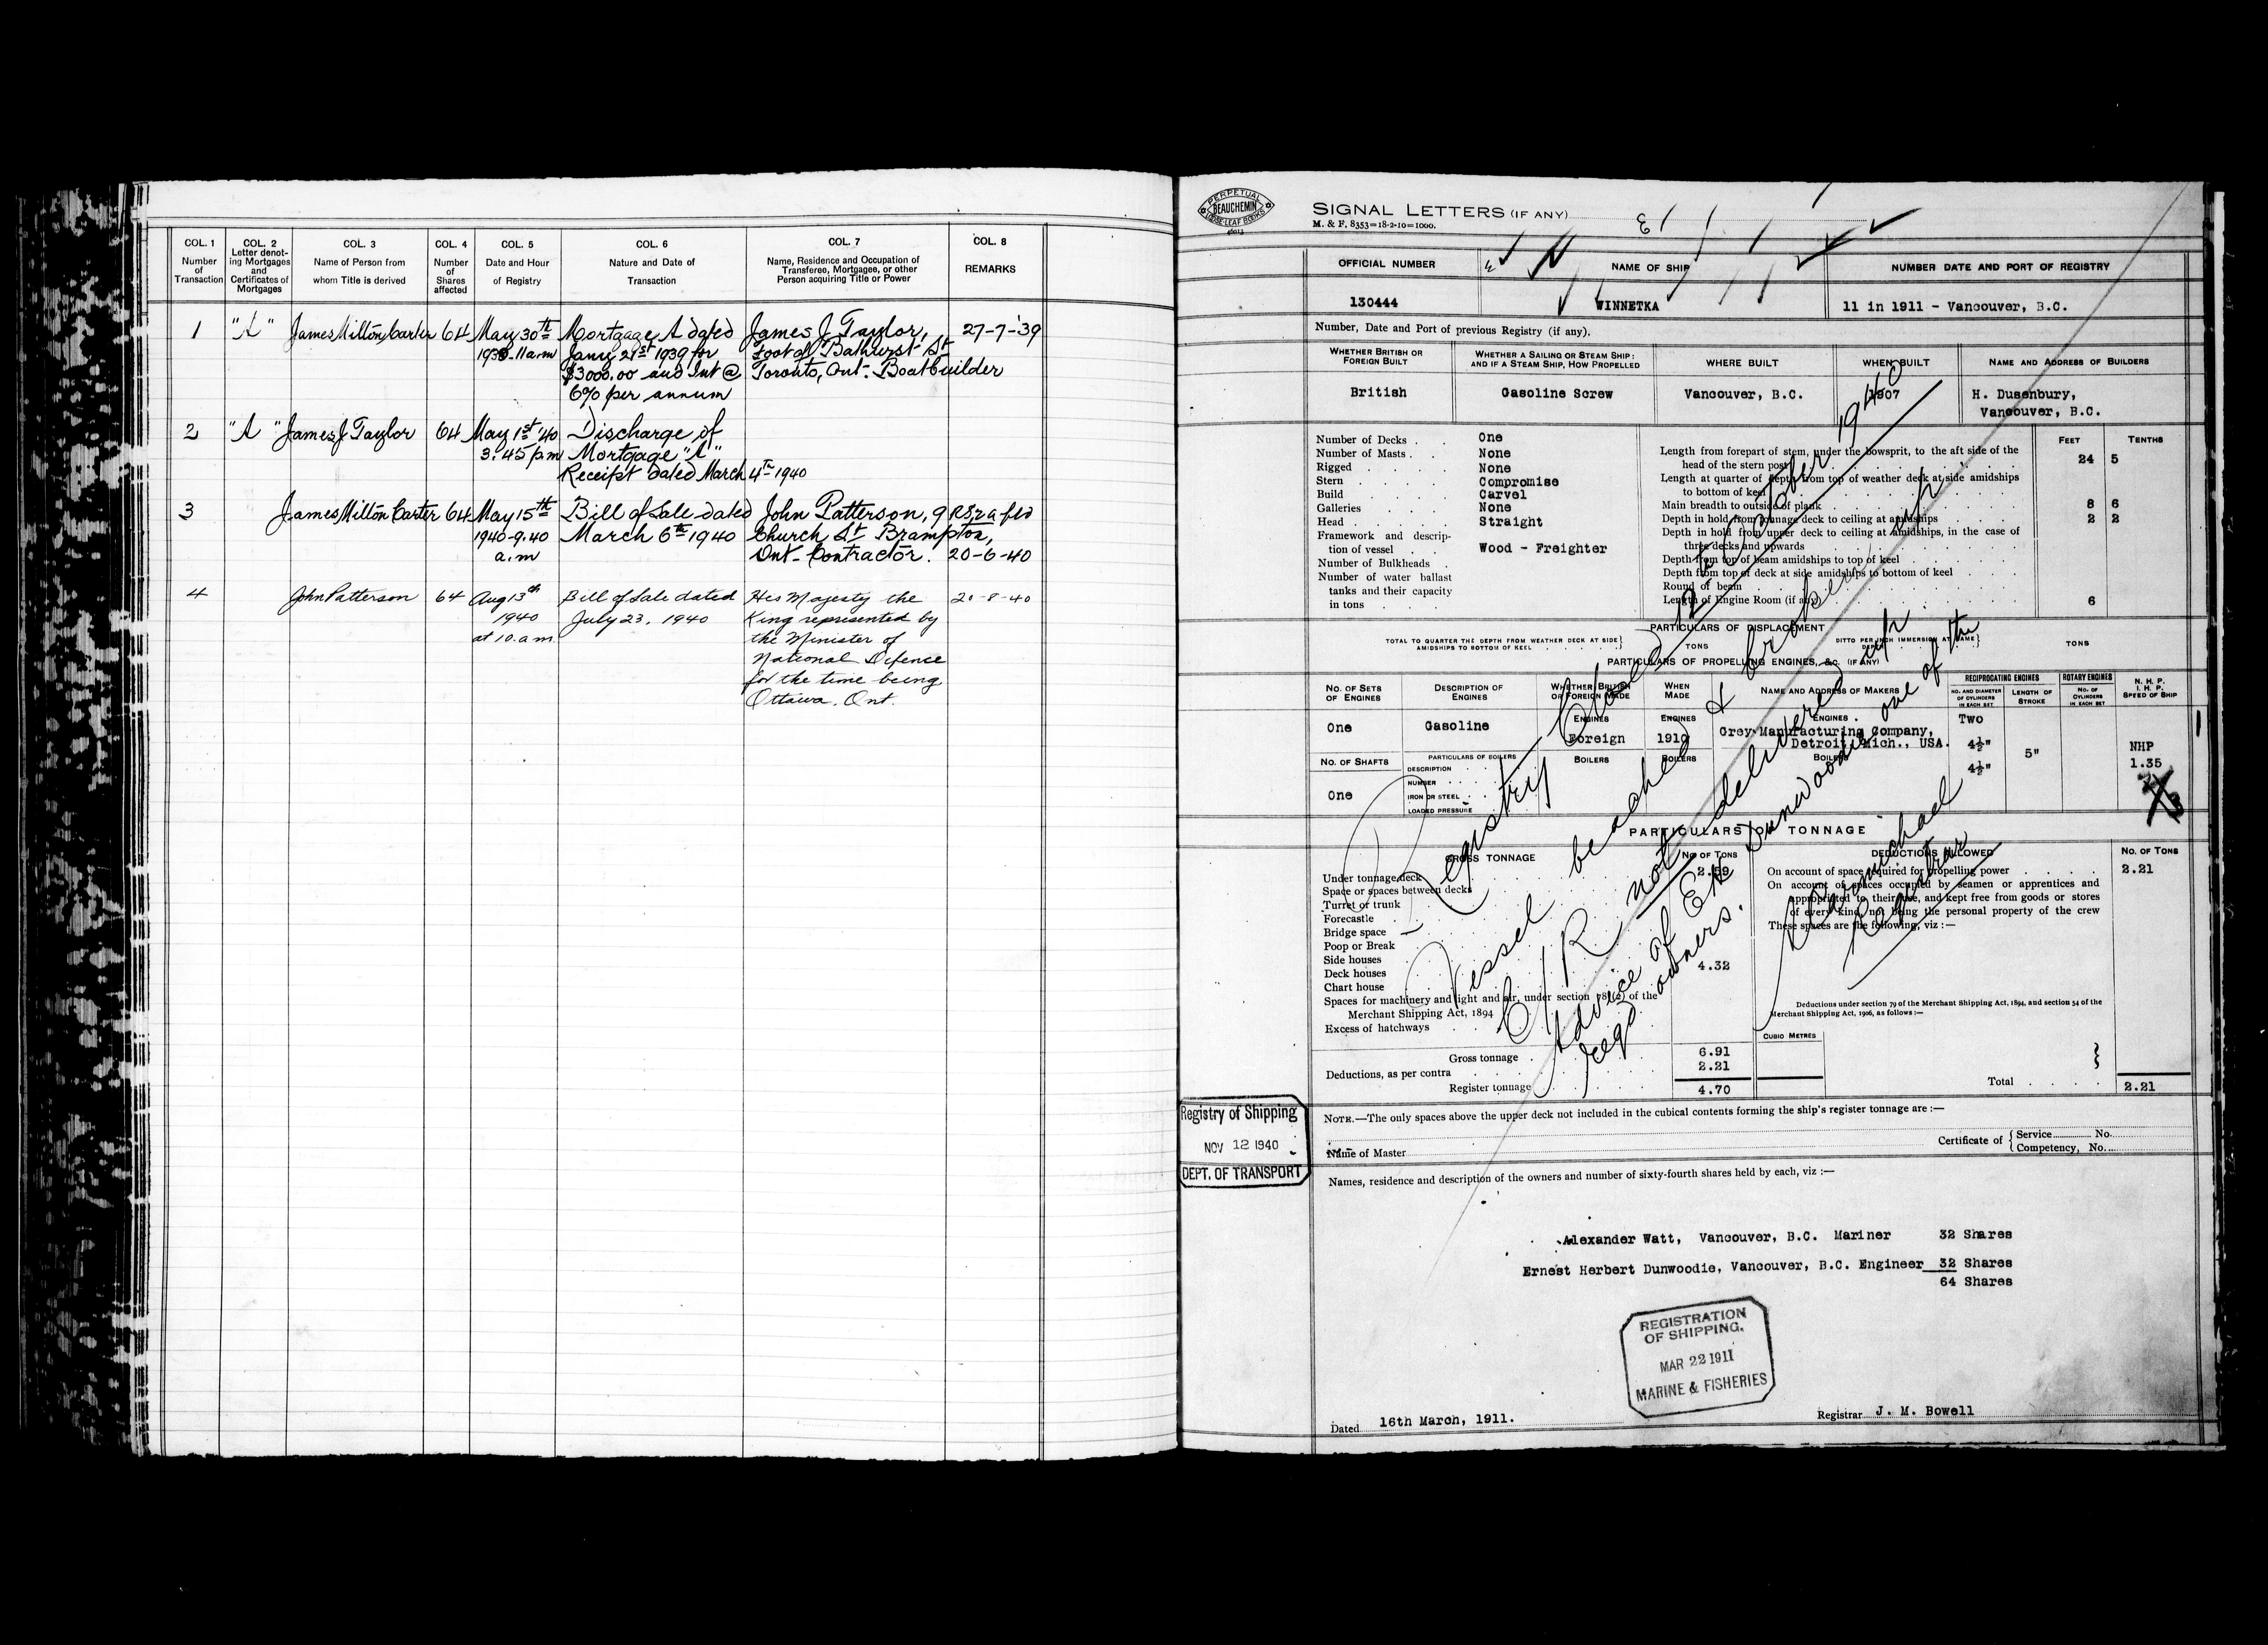 COL. 1
Number
of
Transaction
COL. 2
Letter denot-
ing Mortgages
and
Certificates of
Mortgages
COL. 3
Name of Person from
whom Title is derived
COL. 4
Number
of
Shares
affected
COL. 5
Date and Hour
of Registry
COL. 6
Nature and Date of
Transaction
COL. 7
Name, Residence and Occupation of
Transferee, Mortgagee, or other
Person acquiring Title or Power
COL. 8
REMARKS
1 "A" James Milton Carter 64 May 30th Mortgage A dated James J Taylor, 27-7-'39
1939-11 a.m Jany 21st 1939 for Foot of Bathurst St
$3000.00 and Int @ Toronto, Ont- Boatbuilder
6% per annum
2 "A" James J Taylor 64 May 1st '40 Discharge of
3.45 pm Mortgage "A"
Receipt dated March 4th 1940
3 James Milton Carter 64 May 15th Bill of Sale dated John Patterson, 9
1940-9.40 March 6th 1940 Church St Brampton,
a.m Ont- Contractor. 20-6-40
4 John Patterson 64 Aug 13th Bill of Sale dated His Majesty the 20-8-40
1940 July 23. 1940 King represented by
at 10. a.m the Minister of
National Defence
for the time being
Ottawa. Ont.
PERPETUAL
BEAUCHEMIN
LOOSE-LEAF BOOKS
SIGNAL LETTERS (IF ANY)
M. & F. 8353=18-2-10=1000.
OFFICIAL NUMBER NAME OF SHIP NUMBER DATE AND PORT OF REGISTRY
130444 WINNETKA 11 in 1911 - Vancouver, B.C.
Number, Date and Port of previous Registry (if any).
WHETHER BRITISH OR
FOREIGN BUILT
WHETHER A SAILING OR STEAM SHIP:
AND IF A STEAM SHIP, HOW PROPELLED
WHERE BUILT
WHEN BUILT
NAME AND ADDRESS OF BUILDERS
British Gasoline Screw Vancouver, B.C. 1907 H. Dusenbury,
Vancouver, B.C.
Number of Decks One
Number of Masts None
Rigged None
Stern Compromise
Build Carvel
Galleries None
Head Straight
Framework and descrip-
tion of vessel Wood - Freighter
Number of Bulkheads
Number of water ballast
tanks and their capacity
in tons
FEET TENTHS
Length from forepart of stem, under the bowsprit, to the aft side of the
head of the stern post 24 5
Length at quarter of depth from top of weather deck at side amidships
to bottom of keel
Main breadth to outside of plank 8 6
Depth in hold from tonnage deck to ceiling at amidships 2 2
Depth in hold from upper deck to ceiling at amidships, in the case of
three decks and upwards
Depth from top of beam amidships to top of keel
Depth from top of deck at side amidships to bottom of keel
Round of beam
Length of Engine Room (if any) 6
PARTICULARS OF DISPLACEMENT
TOTAL TO QUARTER THE DEPTH FROM WEATHER DECK AT SIDE
AMIDSHIPS TO BOTTOM OF KEEL
TONS
DITTO PER INCH IMMERSION AT SAME
DEPTH
TONS
PARTICULARS OF PROPELLING ENGINES, &c. (IF ANY)
NO. OF SETS
OF ENGINES
DESCRIPTION OF
ENGINES
WHETHER BRITISH
OR FOREIGN MADE
WHEN
MADE
NAME AND ADDRESS OF MAKERS
RECIPROCATING ENGINES
NO. AND DIAMETER
OF CYLINDERS
IN EACH SET
LENGTH OF
STROKE
ROTARY ENGINES
NO. OF
CYLINDERS
IN EACH SET
N. H. P.
I. H. P.
SPEED OF SHIP
ENGINES ENGINES ENGINES
One Gasoline Foreign 1910 Grey Manufacturing Company,
Detroit, Mich., USA.
Two
4½"
4½"
5"
NHP
1.35
NO. OF SHAFTS
One
PARTICULARS OF BOILERS
DESCRIPTION
NUMBER
IRON OR STEEL
LOADED PRESSURE
BOILERS BOILERS BOILERS
PARTICULARS OF TONNAGE
GROSS TONNAGE NO OF TONS
Under tonnage deck 2.59
Space or spaces between decks
Turret or trunk
Forecastle
Bridge space
Poop or Break
Side houses
Deck houses 4.32
Chart house
Spaces for machinery and light and air, under section 78(2) of the
Merchant Shipping Act, 1894
Excess of hatchways
Gross tonnage 6.91
Deductions, as per contra 2.21
Register tonnage 4.70
DEDUCTIONS ALLOWED NO. OF TONS
On account of space required for propelling power 2.21
On account of spaces occupied by seamen or apprentices and
appropriated to their use, and kept free from goods or stores
of every kind, not being the personal property of the crew
These spaces are the following, viz :—
Deductions under section 79 of the Merchant Shipping Act, 1894, and section 54 of the
Merchant Shipping Act, 1906, as follows :—
CUBIC METRES
Total 2.21
Registry Closed 12th October 1940
Vessel beached & broken up
C/R not delivered up
Advice of EH Dunwoodie one of the
regd owners.
Carmichael
Registrar
Registry of Shipping
NOV 12 1940
DEPT. OF TRANSPORT
NOTE.—The only spaces above the upper deck not included in the cubical contents forming the ship's register tonnage are :—
Name of Master
Certificate of
Service No.
Competency, No.
Names, residence and description of the owners and number of sixty-fourth shares held by each, viz :—
Alexander Watt, Vancouver, B.C. Mariner 32 Shares
Ernest Herbert Dunwoodie, Vancouver, B.C. Engineer 32 Shares
64 Shares
REGISTRATION
OF SHIPPING.
MAR 22 1911
MARINE & FISHERIES
Dated 16th March, 1911.
Registrar J. M. Bowell